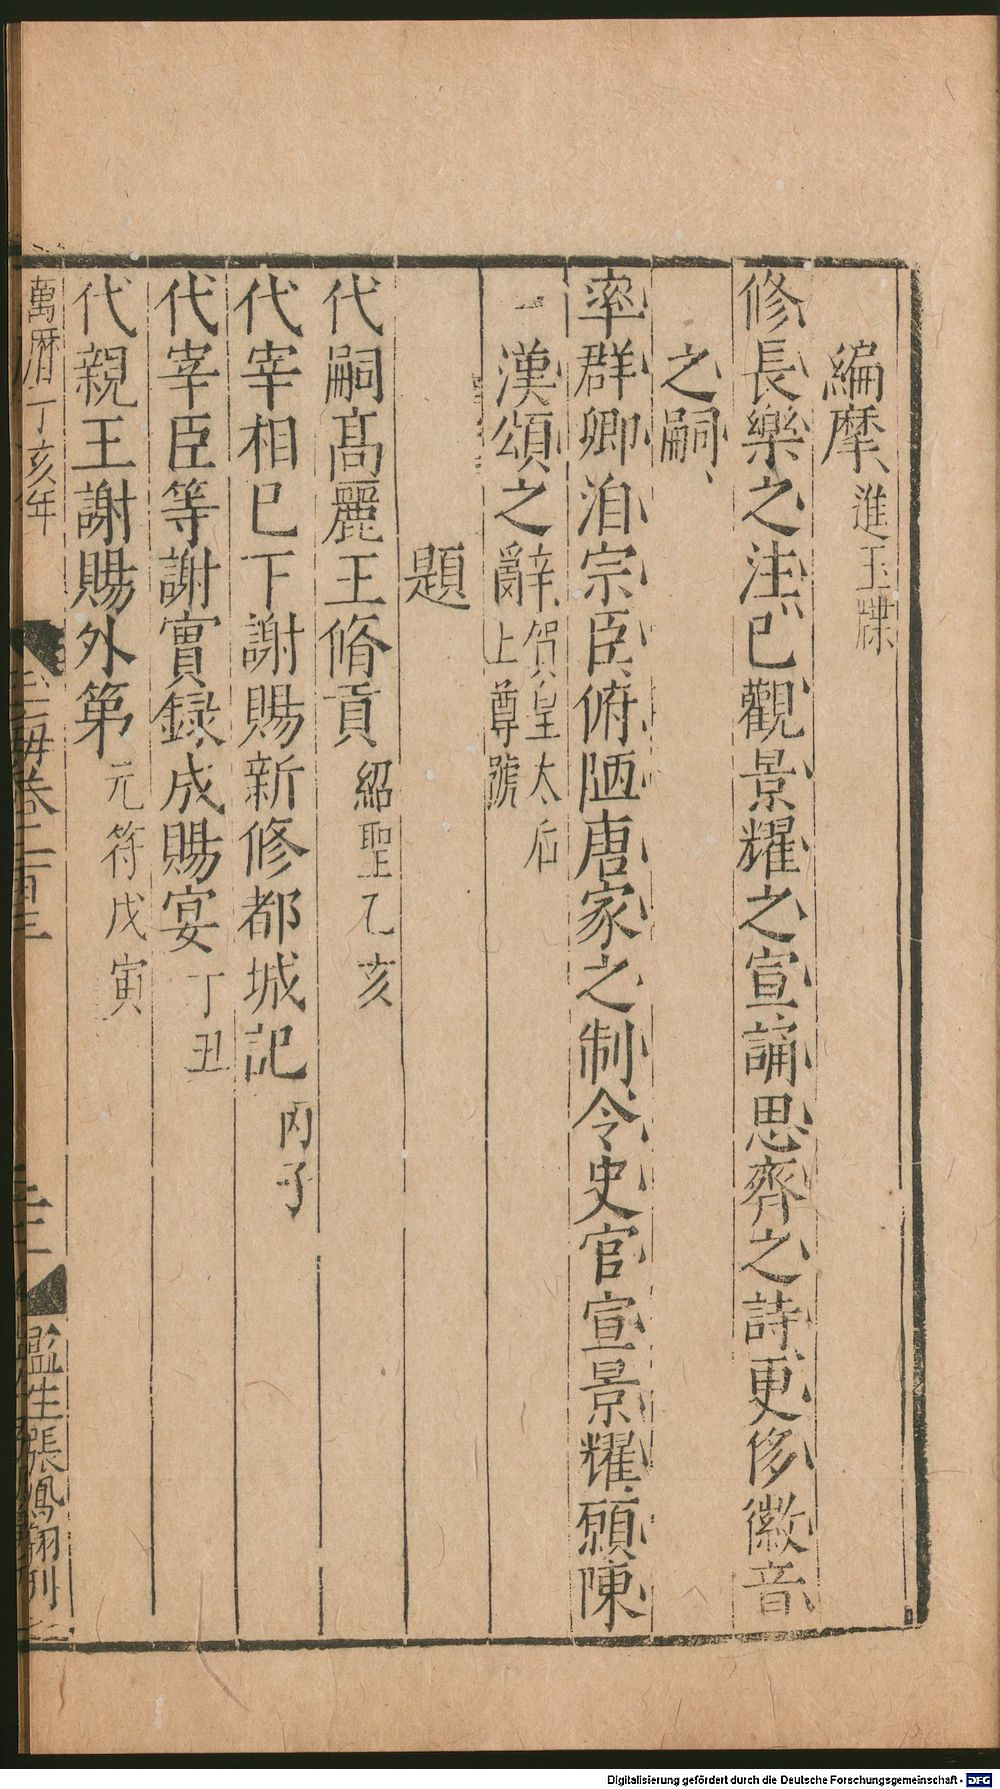 編摩、進玉牒
修長樂之注、已觀景耀之宣、誦思齊之詩、更侈徽音
之嗣、
率群卿洎宗臣俯陋唐家之制令史官宣景耀願陳
一漢頌之辭、賀皇太后上尊號
題
代嗣高麗王脩貢 紹聖乙亥
代宰相已下謝賜新修都城記 丙子
代宰臣等謝實録成賜宴 丁丑
代親王謝賜外第 元符戊寅
萬曆丁亥年
玉海卷二百三
監生張鳳翔刊
Digitalisierung gefördert durch die Deutsche Forschungsgemeinschaft - DFG